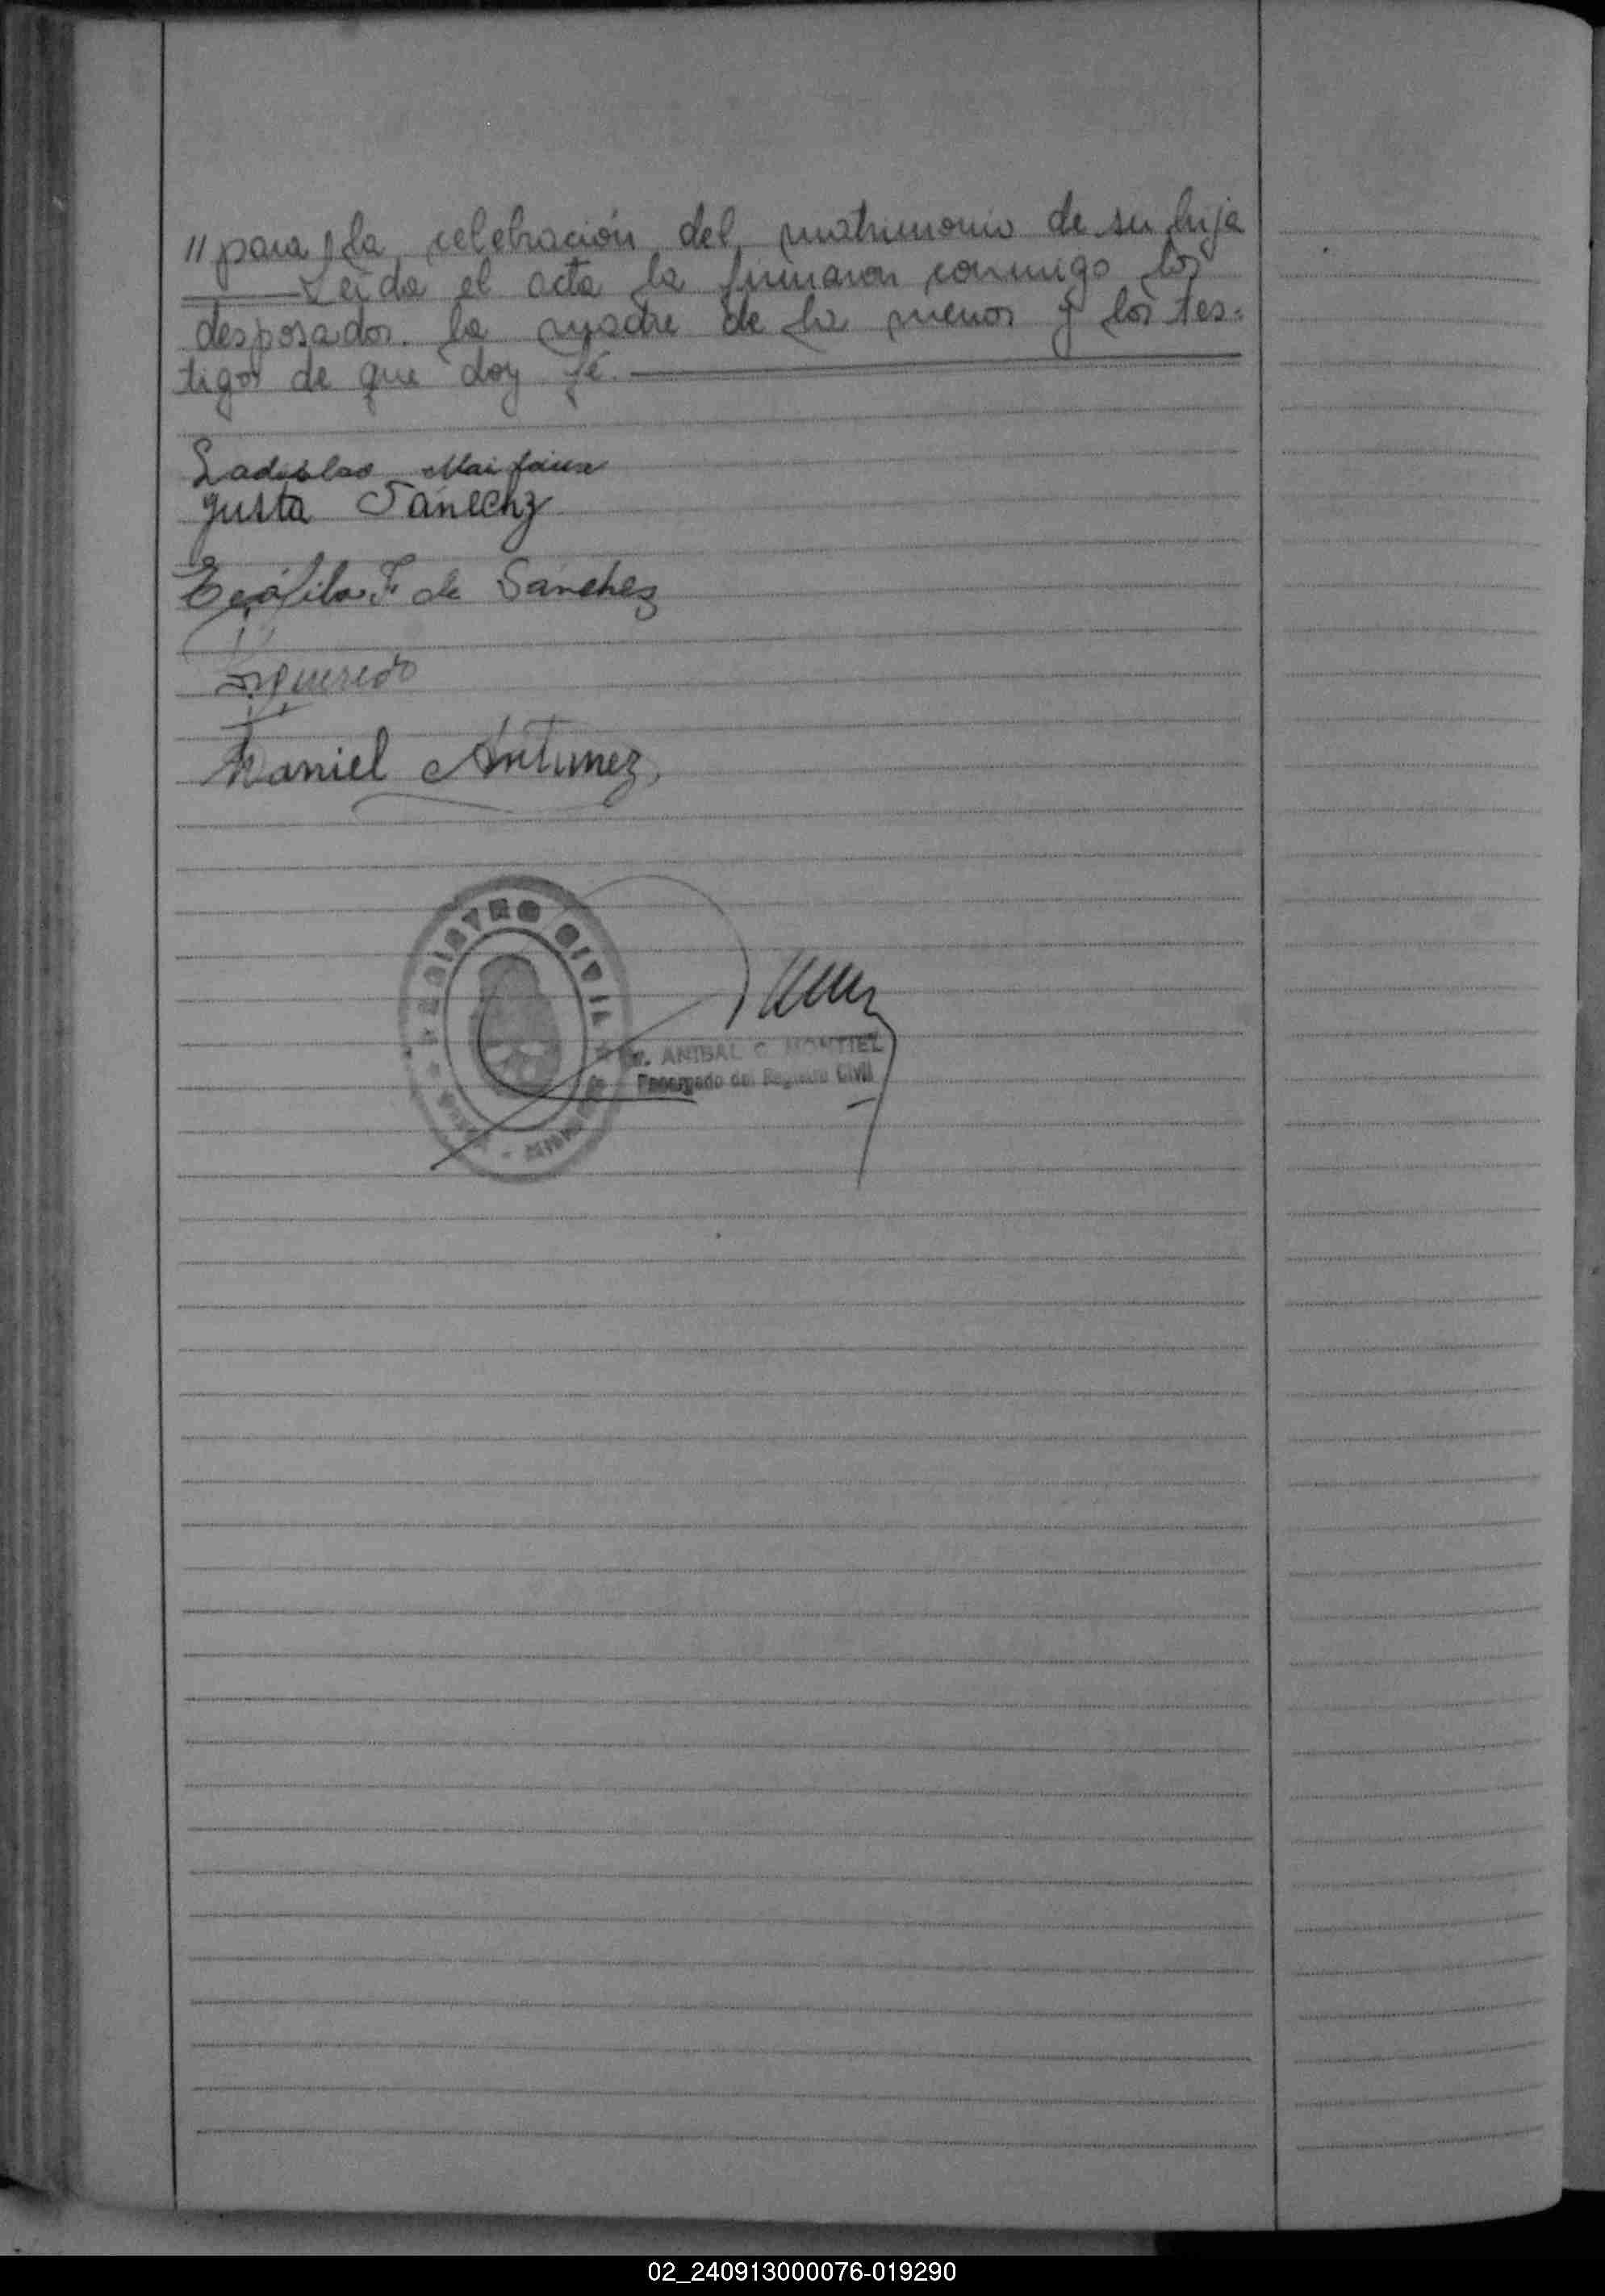 // para la celebración del matrimonio de su hija
Leida el acta la firmaron conmigo los
desposados. la madre de la menor y los tes-
tigos de que doy fé.
Ladislao
Justa Sanechz
Teófila F. de Sánchez
Figueredo
Daniel Antunez
REGISTRO CIVIL
ANIBAL C. MONTIEL
Encargado del Registro Civil
02_240913000076-019290